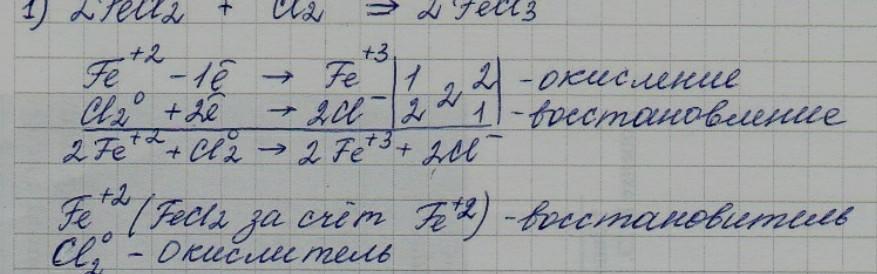 1) 2FeCl2 + Cl2 => 2FeCl3
Fe⁺² - 1ē → Fe⁺³ | 1 2 2 | - окисление
Cl₂⁰ + 2ē → 2Cl⁻ | 2 1 | - восстановление
2Fe⁺² + Cl₂⁰ → 2Fe⁺³ + 2Cl⁻
Fe⁺² (FeCl2 за счёт Fe⁺²) - восстановитель
Cl₂⁰ - окислитель